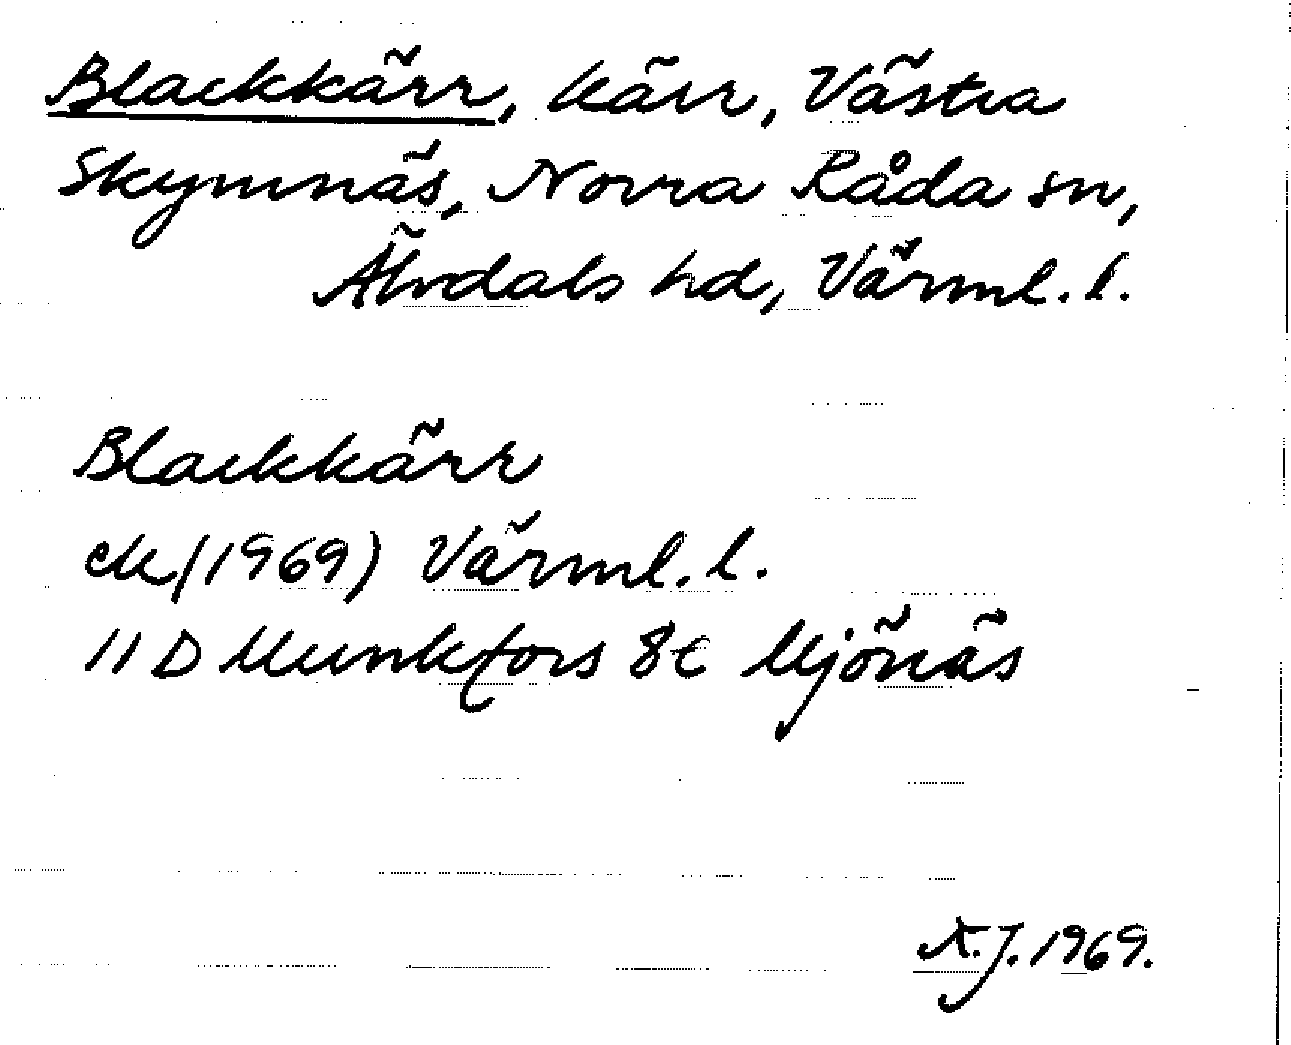 Blackkärr, kärr, Västra
Skymnäs, Norra Råda sn,
Älvdals hd, Värml. l.
Blackkärr
ek (1969) Värml. l.
11 D Munkfors 8c Mjönäs
A.J. 1969.